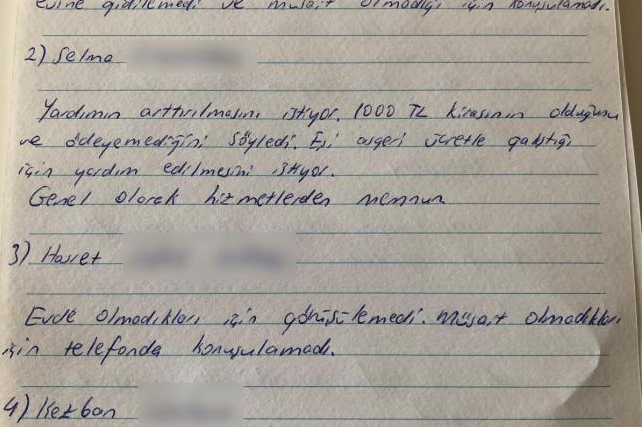 evine gidilemedi ve müsait olmadığı için konuşulamadı.
2) Selma
Yardımın arttırılmasını istiyor. 1000 TL kirasının olduğunu
ve ödeyemediğini söyledi. Eşi asgeri ücretle çalıştığı
için yardım edilmesini istiyor.
Genel olarak hizmetlerden memnun
3) Hasret
Evde olmadıkları için görüşülemedi. Müsait olmadıkları
için telefonda konuşulamadı.
4) Kezban